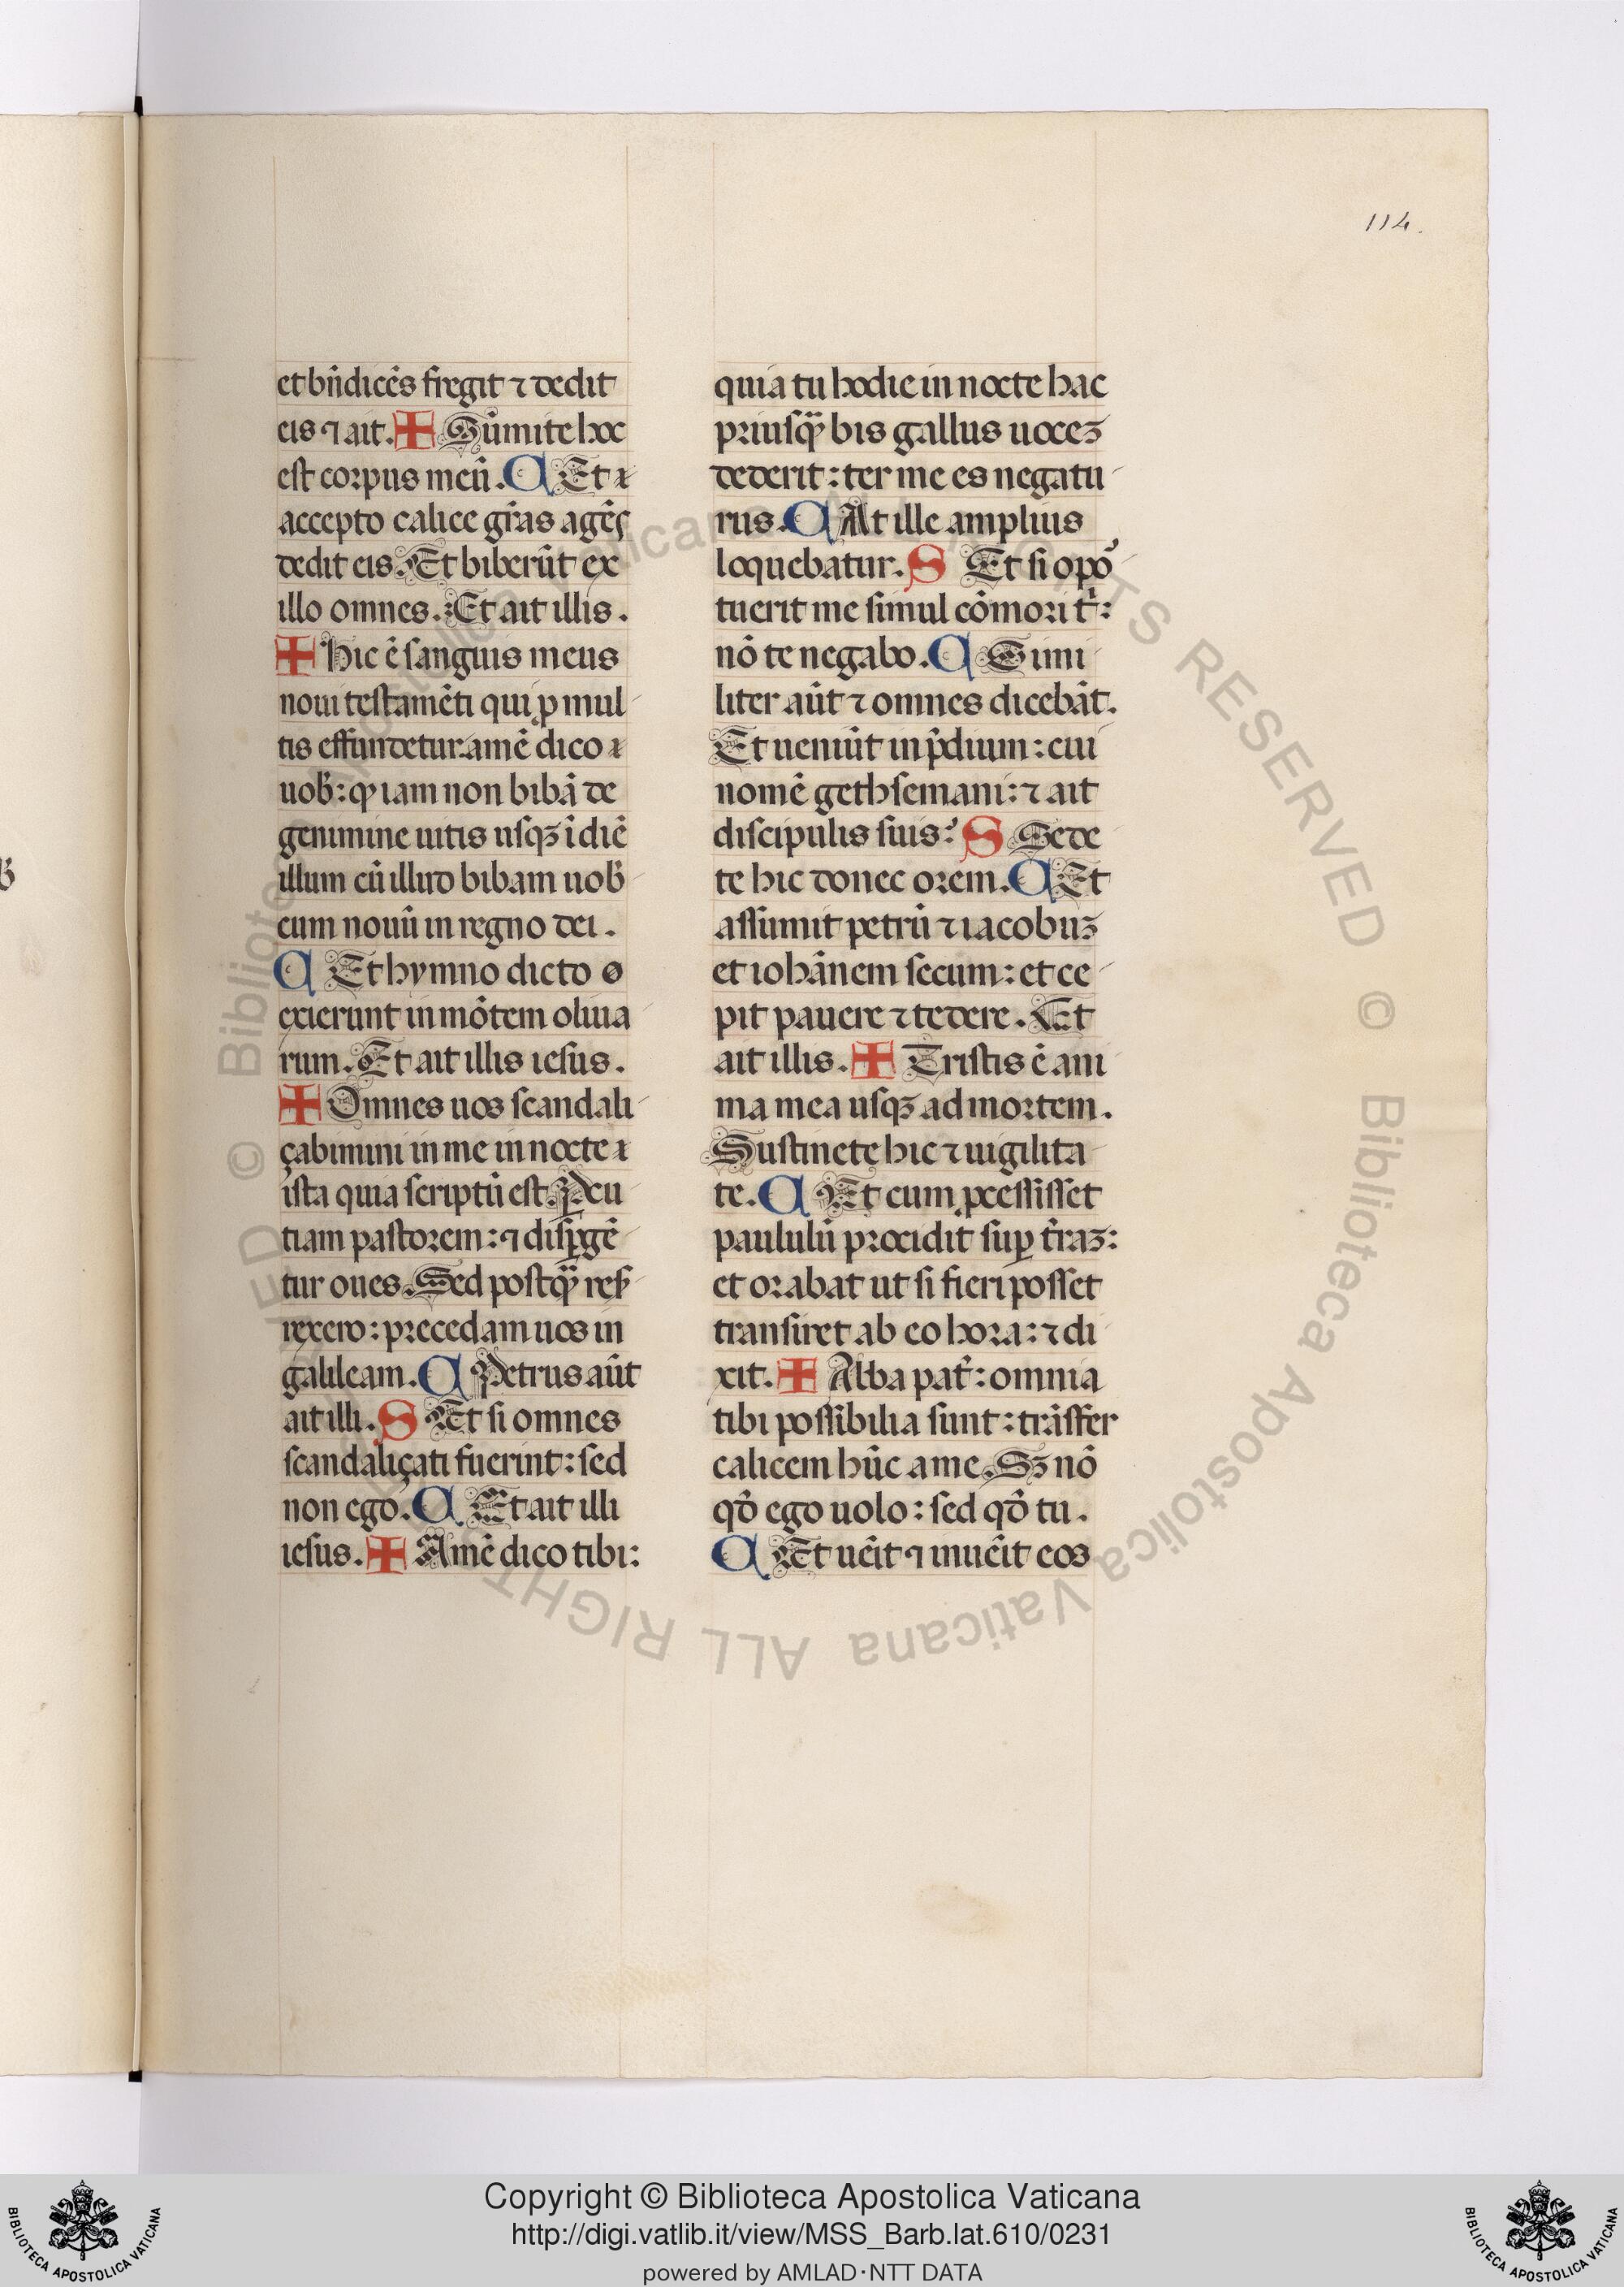 114.
et bn̄dicēs fregit ⁊ dedit
eis ⁊ ait. ✠ Sūmite hoc
est corpus meū. C Et
accepto calice gr̄as agēs
dedit eis. Et biberūt ex
illo omnes. Et ait illis.
✠ hic ē sanguis meus
noui testamēti qui ꝓ mul
tis effundetur. amē dico
uob̄: ꝙ iam non bibā de
genimine uitis usqꝫ ī diē
illum cū illud bibam uob̄
cum nouū in regno dei.
C Et hymno dicto
exierunt in mōtem oliua
rum. Et ait illis iesus.
✠ Omnes uos scandali
çabimini in me in nocte
ista quia scriptū est. Percu
tiam pastorem: ⁊ disꝑgē
tur oues. Sed postꝙ̄ res
rexero: precedam uos in
galileam. C Petrus aūt
ait illi. S Et si omnes
scandaliçati fuerint: sed
non ego. C Et ait illi
iesus. ✠ Amē dico tibi:
quia tu hodie in nocte hac
priusꝙ̄ bis gallus uoceꝫ
dederit: ter me es negatu
rus. C At ille amplius
loquebatur. S Et si opo᷒
tuerit me simul cōmori t̄:
nō te negabo. C Simi
liter aūt ⁊ omnes dicebāt.
Et ueniūt in p̄dium: cui
nomē gethsemani: ⁊ ait
discipulis suis: S Sede
te hic donec orem. C Et
assumit petrū ⁊ iacobuꝫ
et iohānem secum: et ce
pit pauere ⁊ tedere. Et
ait illis. ✠ Tristis ē ani
ma mea usqꝫ ad mortem.
Sustinete hic ⁊ uigilita
te. C Et cum ꝓcessisset
paululū procidit suꝑ t̄raꝫ:
et orabat ut si fieri posset
transiret ab eo hora: ⁊ di
xit. ✠ Abba pat̄: omnia
tibi possibilia sunt: trāsfer
calicem hūc a me. Sꝫ nō
qō ego uolo: sed qō tu.
C Et uēit ⁊ inuēit eos
© Biblioteca Apostolica Vaticana ALL RIGHTS RESERVED © Biblioteca Apostolica Vaticana ALL RIGHTS RESERVED
BIBLIOTECA APOSTOLICA VATICANA
Copyright © Biblioteca Apostolica Vaticana
http://digi.vatlib.it/view/MSS_Barb.lat.610/0231
powered by AMLAD·NTT DATA
BIBLIOTECA APOSTOLICA VATICANA